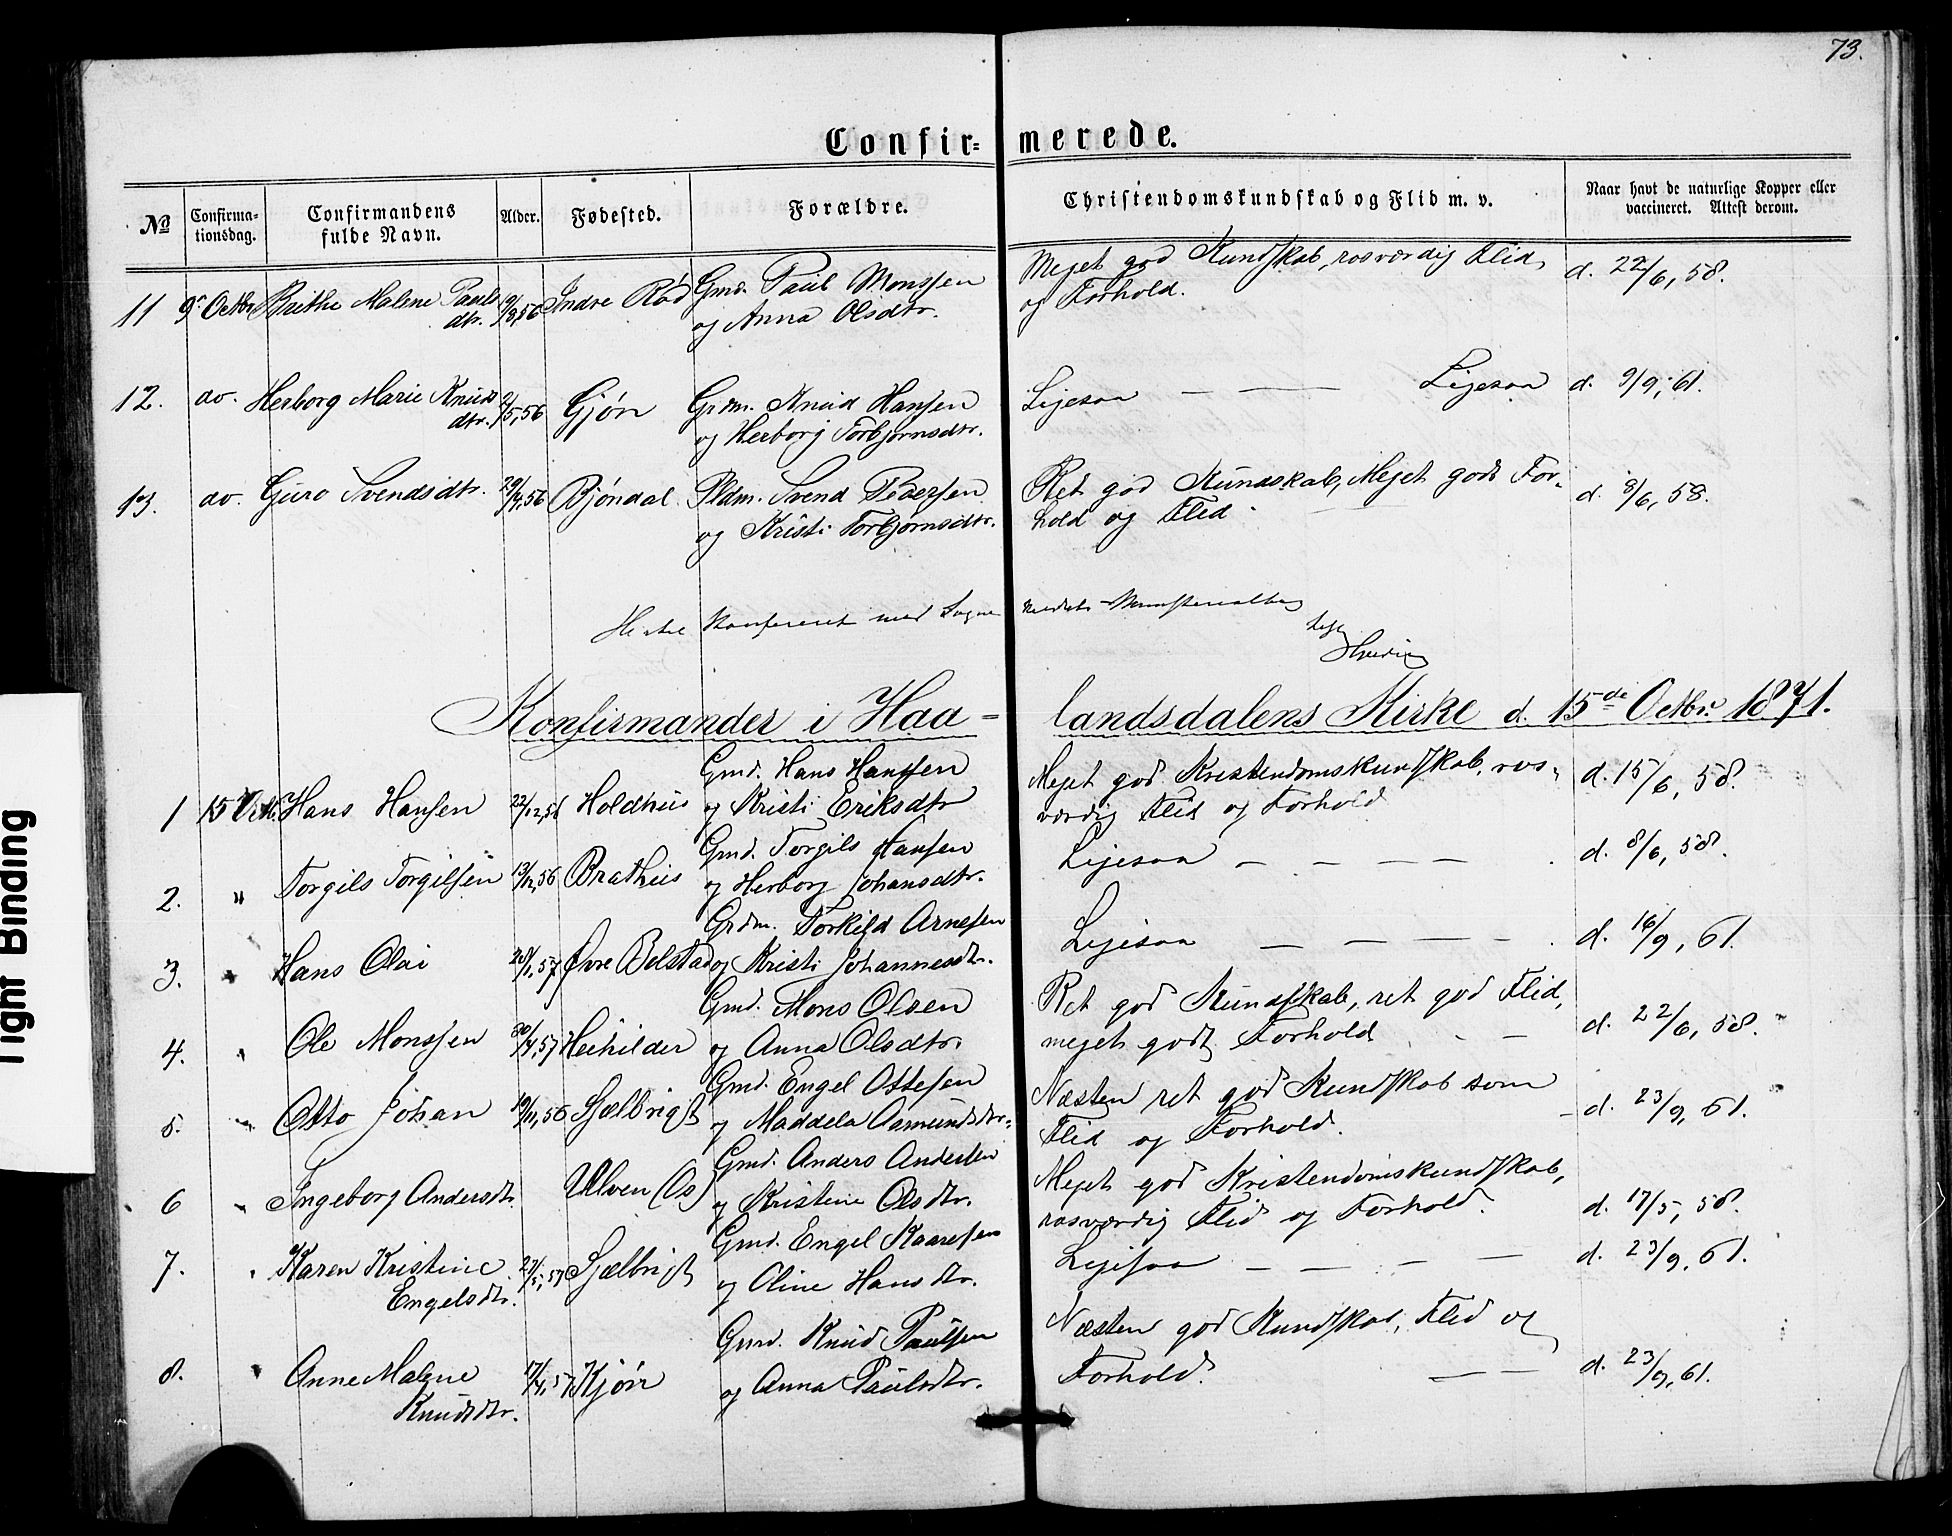 73.
Confir= merede.
No
Confirma-
tionsdag.
Confirmandens
fulde Navn.
Alder.
Fødested.
Forældre.
Christendomskundskab og Flid m. v.
Naar havt de naturlige Kopper eller
vaccineret. Attest derom.
11 9. Octbr Brithe Malene Pauls 9/8,56 Indre Rød Gmd. Paul Monssen Meget god Kundskab, rosværdig Flid d. 22/6, 58.
dtr. og Anna Olsdtr. og Forhold.
12. do. Herborg Marie Knuds 2/5,56 Gjøn Grdm. Knud Hansen Ligesaa — — Ligesaa d. 9/9, 61.
dtr. og Herborg Torbjørnsdtr.
13. do. Guro Svendsdtr. 29/4,56 Bjøndal. Pldm. Svend Pedersen Ret god Kundskab, Meget godt For- d. 8/6, 58.
og Kristi Torbjørnsdtr. hold og Flid.
konfereret med Sogne
Konfirmander i Haa- landsdalens Kirke d. 15de Octbr. 1871.
Gmd. Hans Hanssen Meget god Kristendomskundskab, ros- d. 15/6, 58.
1 15 Octb. Hans Hansen 22/12,56 Holdhus og Kristi Eriksdtr værdig Flid og Forhold
Gmd. Torgils Hansen Ligesaa — — — — d. 8/6, 58.
2. " Torgils Torgilsen 13/12,56 Brathus og Herborg Johansdtr.
Grdm. Torkild Arnesen Ligesaa — — — — d. 16/9, 61.
3. " Hans Olai 28/1,57 Øvre Bolstad og Kristi Johannesdtr.
Gmd. Mons Olsen Ret god Kundskab, ret god Flid,
4. " Ole Monssen 30/4,57 Heihilder og Anna Olsdtr. meget godt Forhold — d. 22/6, 58.
Gmd. Engel Ottesen Næsten ret god Kundskab som
5. " Otto Johan 10/11,56 Sjælbrigt og Maddela Aamundsdtr. Flid og Forhold. — d. 23/9, 61.
Gmd. Anders Andersen Meget god Kristendomskundskab,
6 " Ingeborg Andersdtr. Ulven (Os) og Kristine Olsdtr. rosværdig Flid og Forhold. d. 17/5, 58.
Gmd. Engel Kaaresen
7. " Karen Kristine 27/5,57 Sjælbrigt og Oline Hansdtr. Ligesaa — — — — d. 23/9, 61.
Engelsdtr.
Gmd. Knud Paulsen Næsten god Kundskab, Flid og
8. " Anne Malene 17/4,57 Kjøn og Anna Paulsdtr. Forhold. — — d. 23/9, 61.
Knudsdtr.
Tight Binding